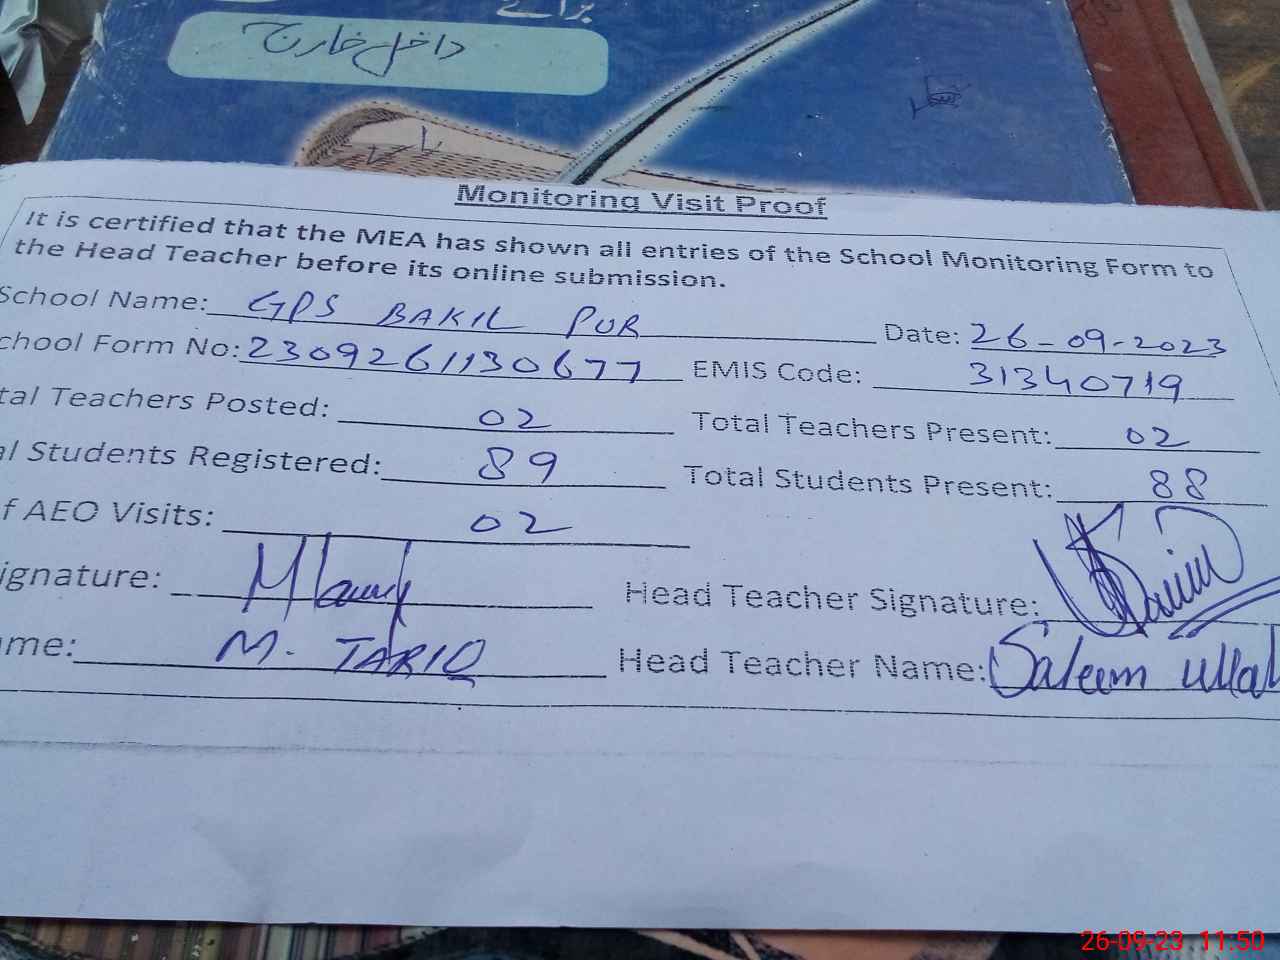 برائے
داخل خارج
Monitoring Visit Proof
It is certified that the MEA has shown all entries of the School Monitoring Form to
the Head Teacher before its online submission.
School Name: GPS BAKIL PUR Date: 26-09-2023
chool Form No: 2309261130677 EMIS Code: 31340719
tal Teachers Posted: 02 Total Teachers Present: 02
al Students Registered: 89 Total Students Present: 88
f AEO Visits: 02
ignature: Head Teacher Signature:
me: M. TARIQ Head Teacher Name: Saleem ullah
26-09-23 11:50